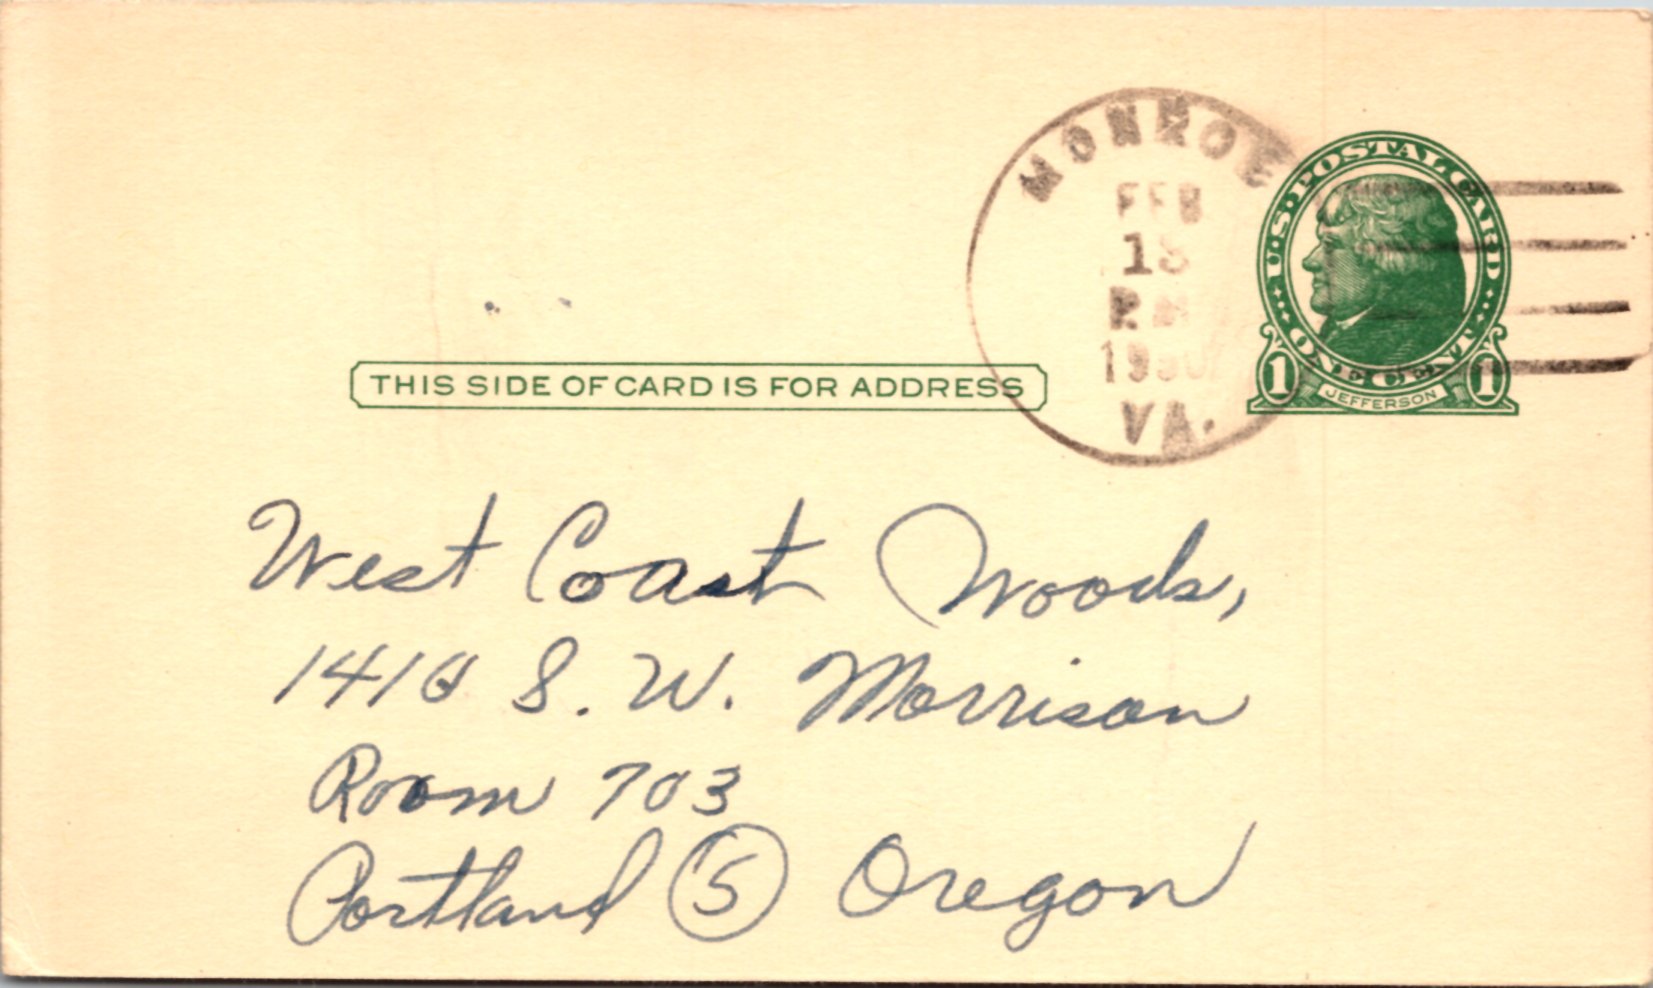 MONROE
FEB
P.M.
VA.
U.S. POSTAL CARD
ONE CENT
1 JEFFERSON 1
THIS SIDE OF CARD IS FOR ADDRESS
West Coast Woods,
1410 S. W. Morrison
Room 703
Portland 5 Oregon